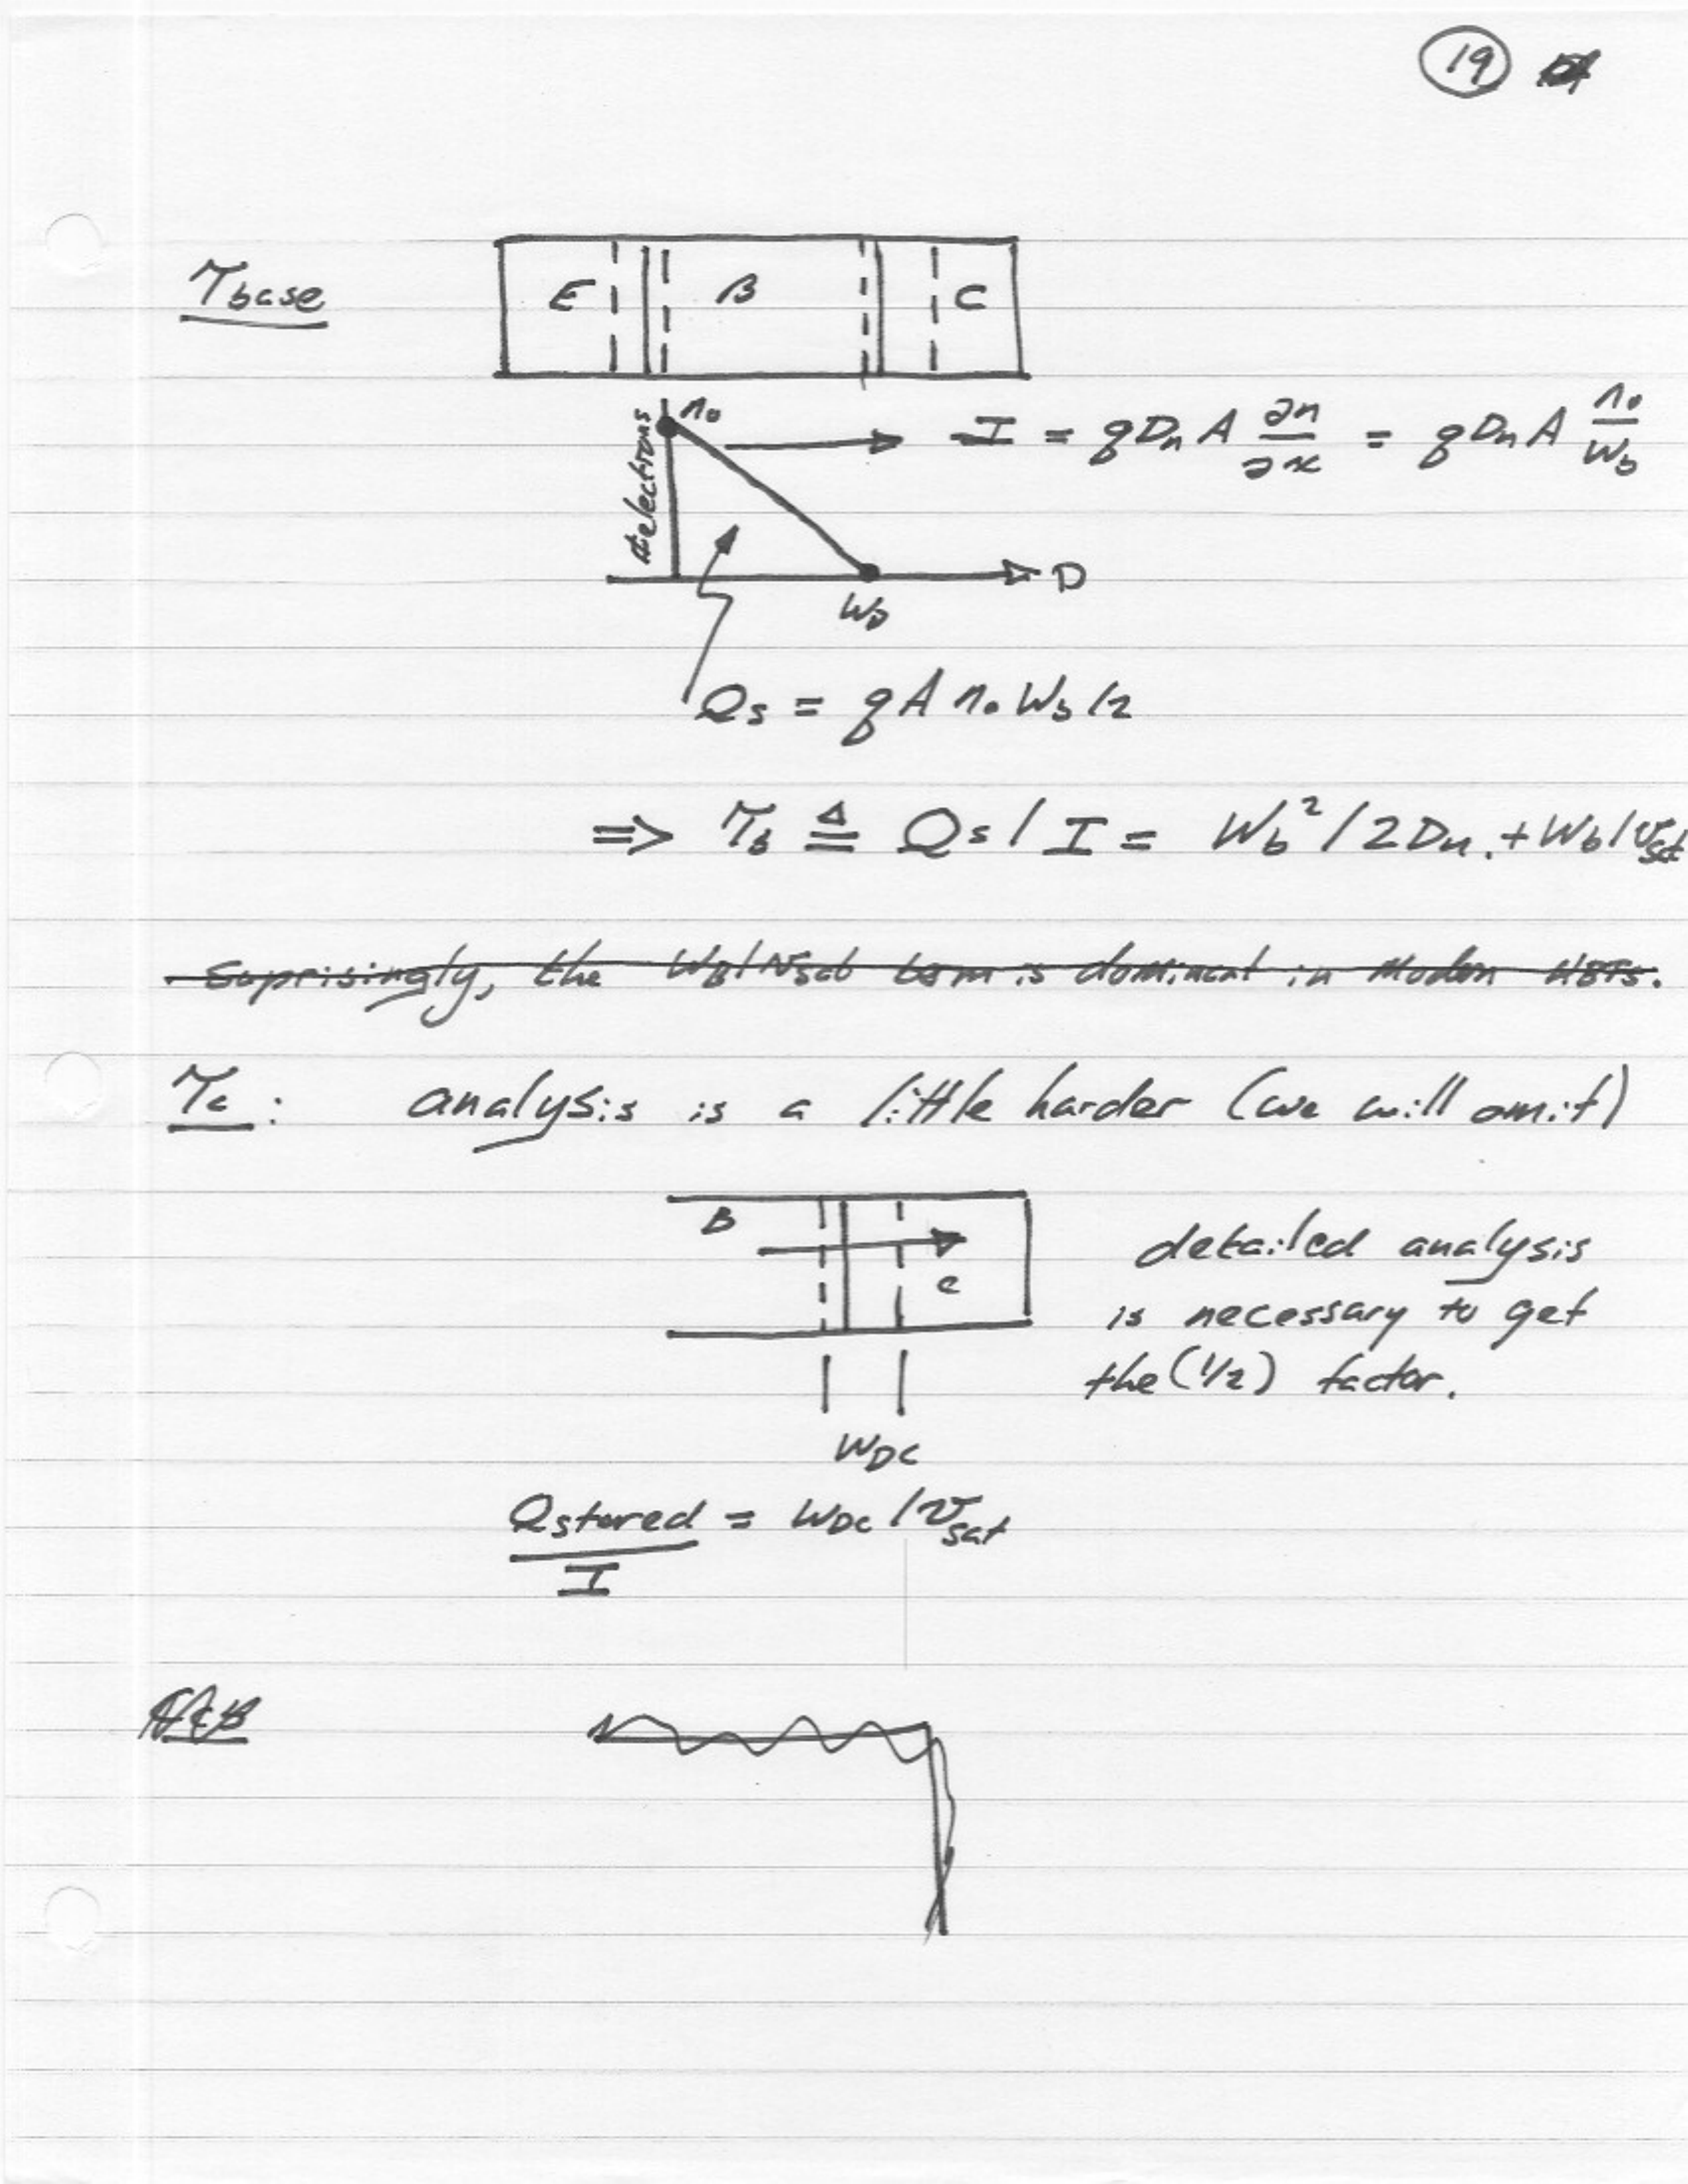 19
τbase
E B C
n₀
I = qDₙA ∂n/∂x = qDₙA n₀/Wb
# electrons
D
Wb
Qs = qA n₀ Wb/2
=> τb ≜ Qs / I = Wb²/2Dₙ + Wb/vsat
Suprisingly, the WB/vsat term is dominant in modern HBTs.
τc : analysis is a little harder (we will omit)
B
detailed analysis
c
is necessary to get
the (1/2) factor.
WDC
Qstored/I = WDC/vsat